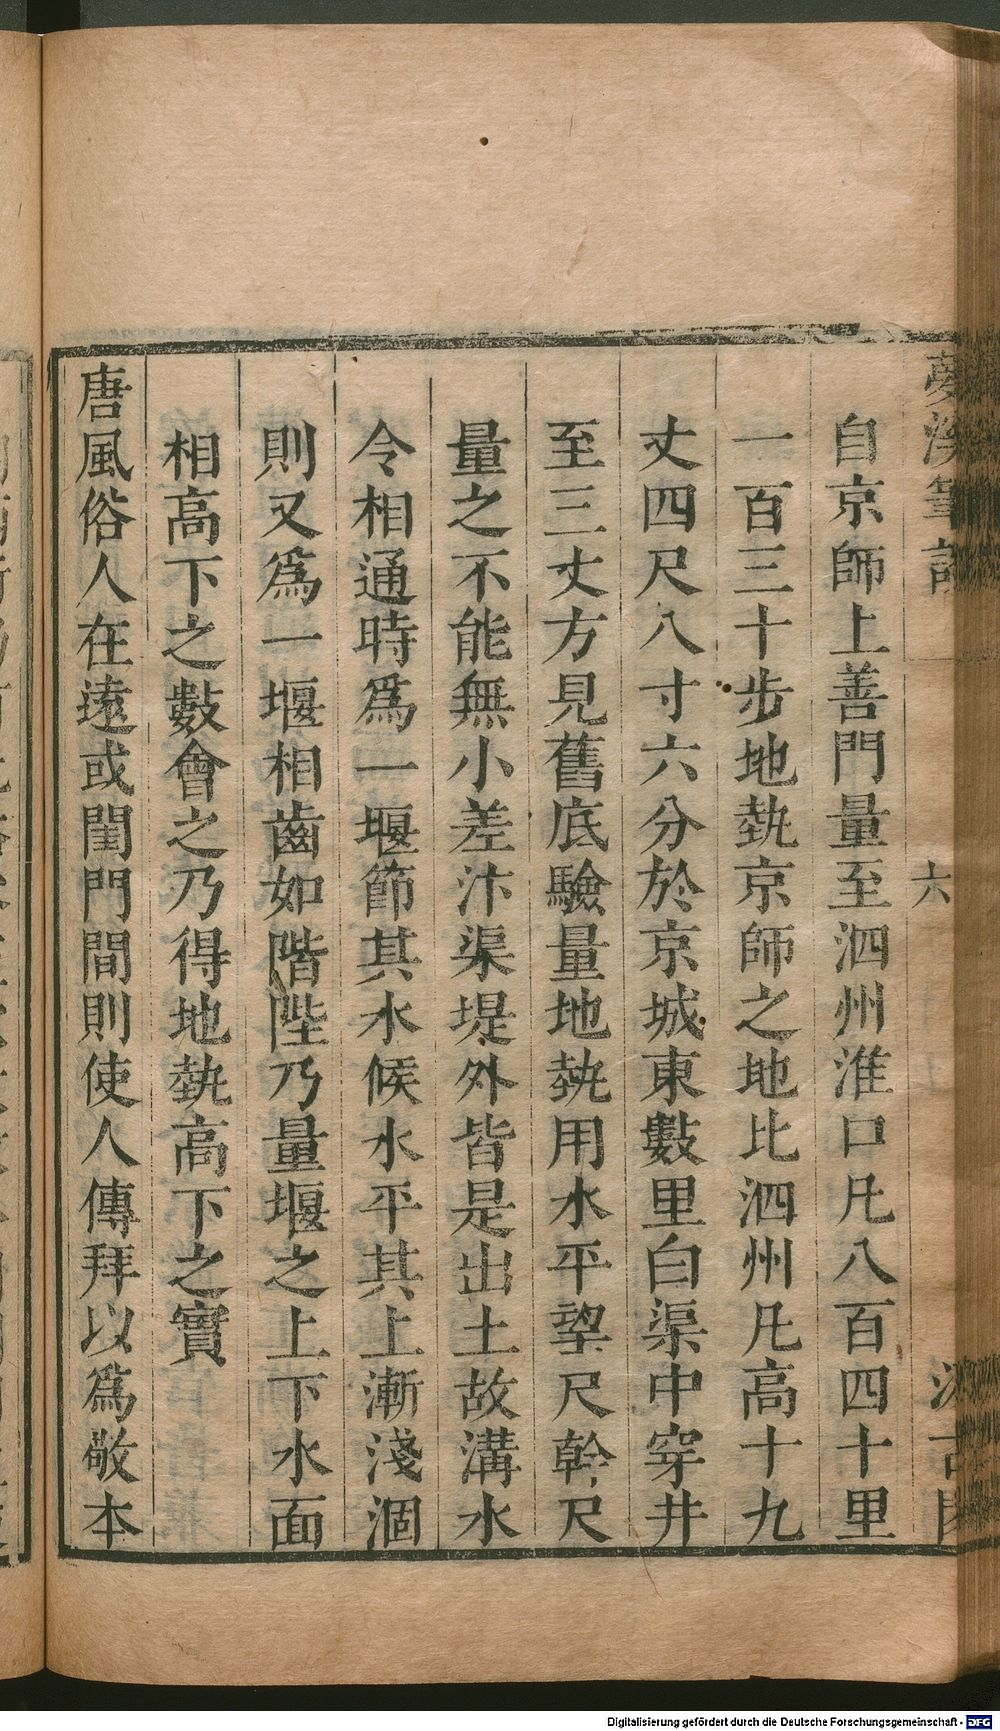 夢溪筆談
六
汲古閣
自京師上善門量至泗州淮口凡八百四十里
一百三十步地埶京師之地比泗州凡高十九
丈四尺八寸六分於京城東數里白渠中穿井
至三丈方見舊底驗量地埶用水平望尺幹尺
量之不能無小差汴渠堤外皆是出土故溝水
令相通時爲一堰節其水候水平其上漸淺涸
則又爲一堰相齒如階陛乃量堰之上下水面
相高下之數會之乃得地埶高下之實
唐風俗人在遠或閨門間則使人傳拜以爲敬本
Digitalisierung gefördert durch die Deutsche Forschungsgemeinschaft - DFG